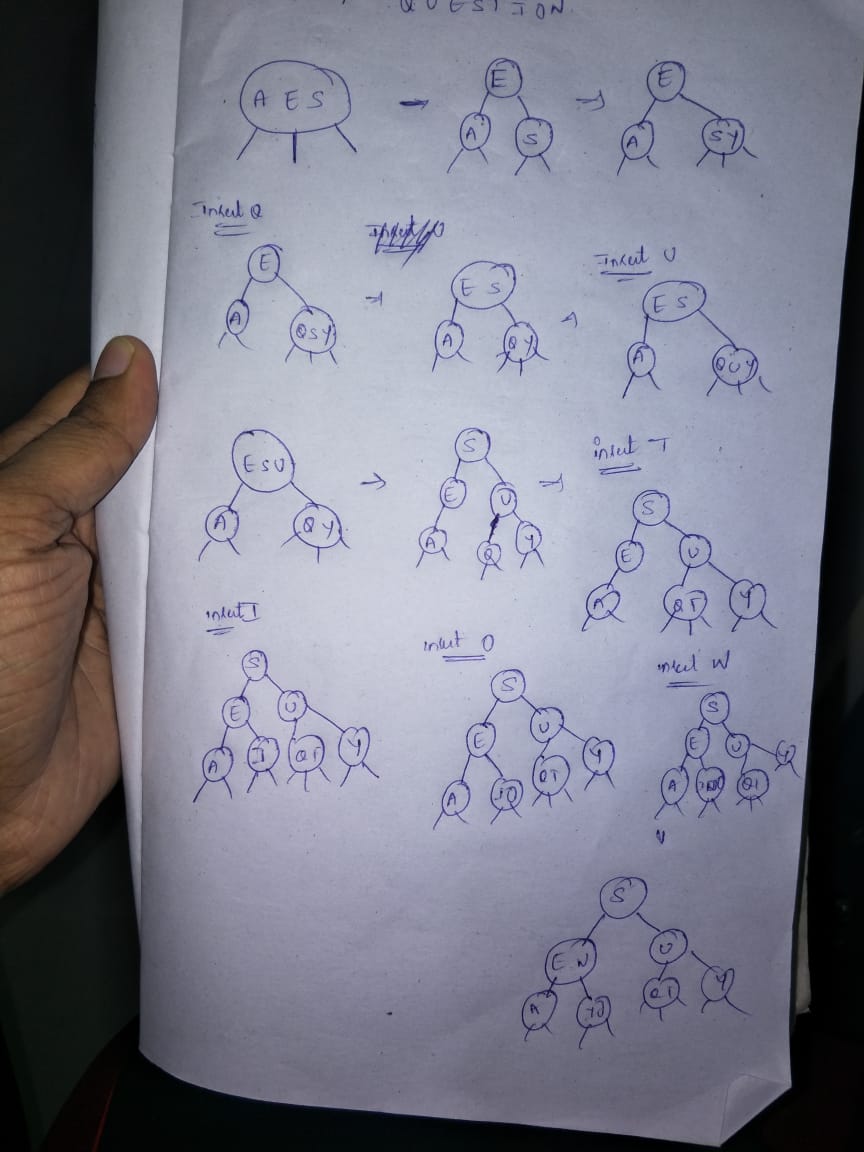 QUESTION
A E S
E
A S
E
A SY
Insert Q
E
A QSY
E S
A QY
Insert U
E S
A QUY
E S U
A QY
S
E U
A Q Y
insert T
S
E U
A QT Y
insert I
S
E U
A I QT Y
insert O
S
E U
A IO QT Y
insert N
S
E U Y
A INO QT
S
E N U
A IO QT Y